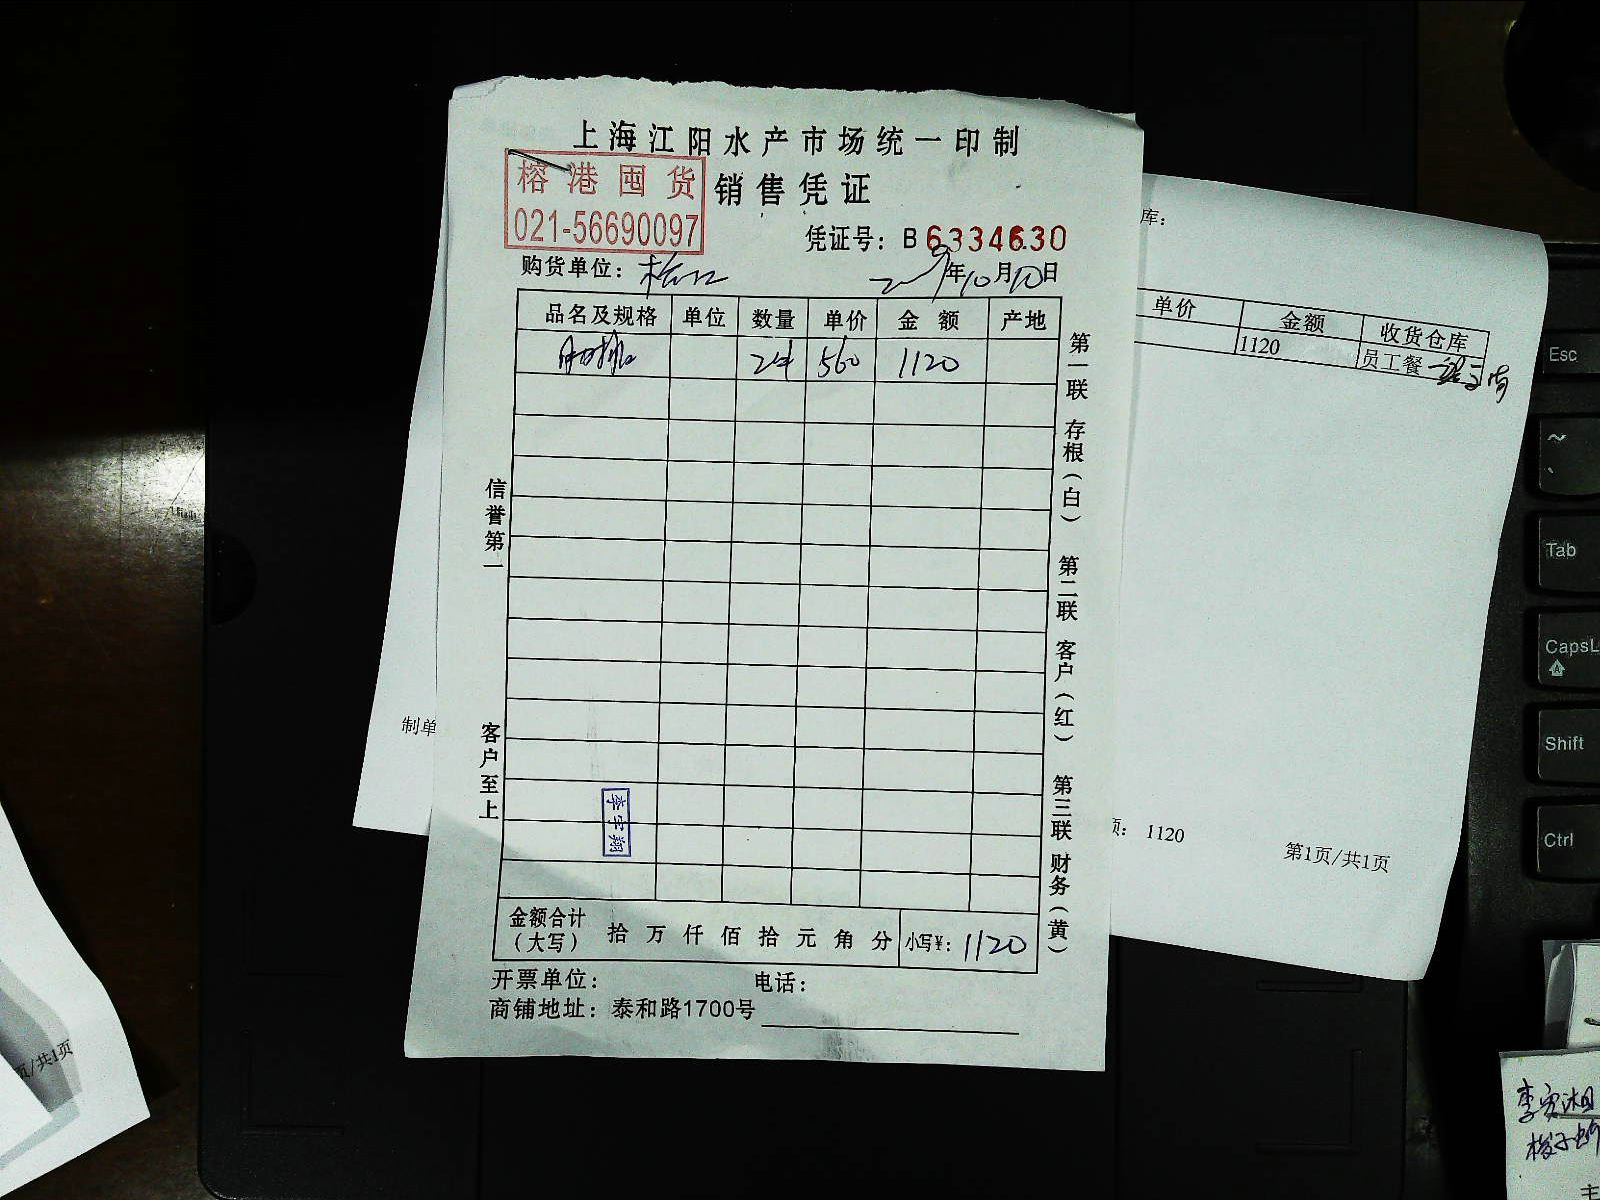 上海江阳水产市场统一印制
榕港囤货
021-56690097
销售凭证
凭证号：B6334630
购货单位：松江
年10月10日
品名及规格 单位 数量 单价 金额 产地
2件 560 1120
信誉第一
客户至上
第一联 存根（白） 第二联 客户（红） 第三联 财务（黄）
李宇翔
金额合计（大写） 拾 万 仟 佰 拾 元 角 分 小写¥：1120
开票单位： 电话：
商铺地址：泰和路1700号
库：
单价 金额 收货仓库
1120 员工餐
制单
1120
第1页/共1页
页/共1页
Esc
~
Tab
CapsL
Shift
Ctrl